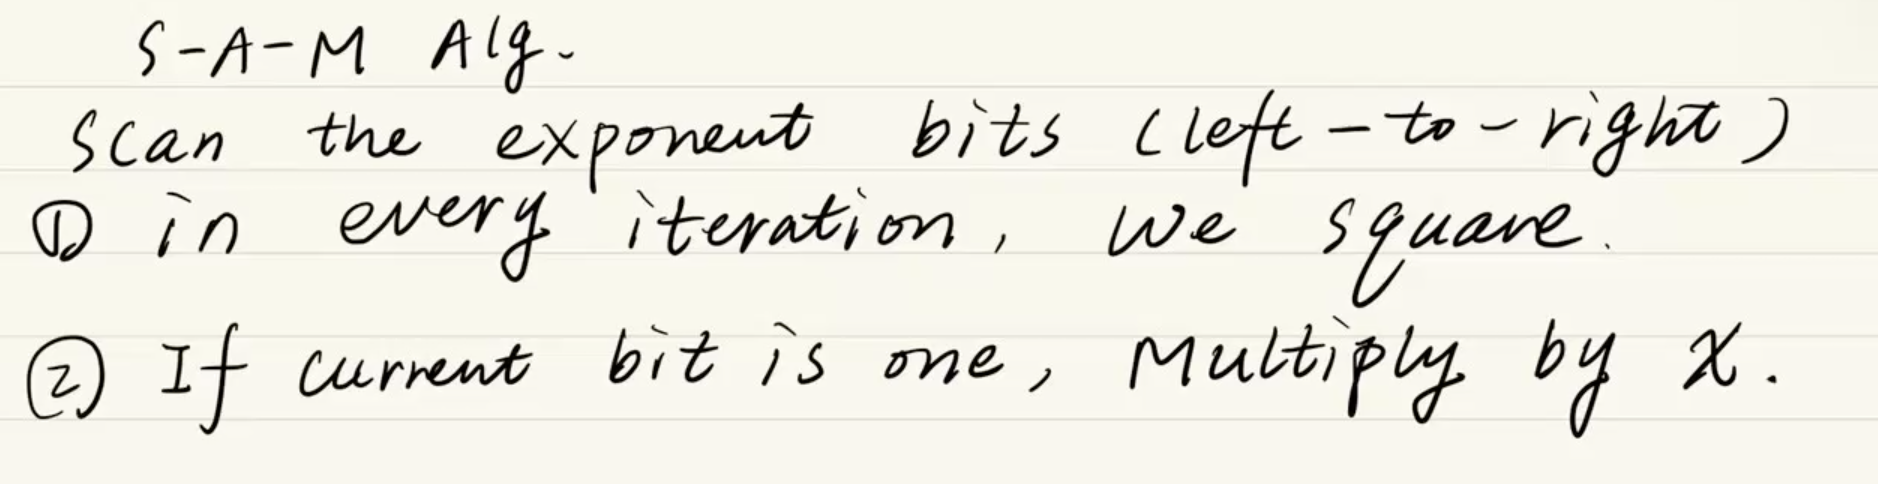 S-A-M Alg.
Scan the exponent bits (left-to-right)
① in every iteration, we square.
② If current bit is one, Multiply by x.